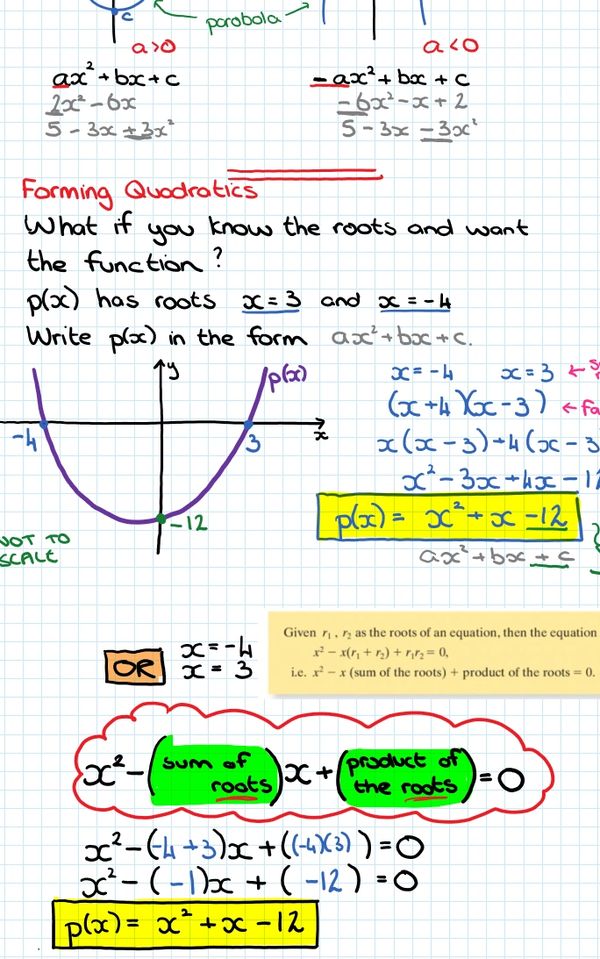 c
parabola
a>0
a<0
ax²+bx+c
-ax²+bx+c
2x²-6x
-6x²-x+2
5-3x+3x²
5-3x-3x²
Forming Quadratics
What if you know the roots and want
the function?
p(x) has roots x=3 and x=-4
Write p(x) in the form ax²+bx+c.
y
p(x)
x
-4
3
-12
NOT TO
SCALE
x=-4 x=3 ←
(x+4)(x-3) ←
x(x-3)+4(x-3
x²-3x+4x-12
p(x) = x²+x-12
ax²+bx+c
OR
x=-4
x=3
Given r₁, r₂ as the roots of an equation, then the equation
x² − x(r₁ + r₂) + r₁r₂ = 0,
i.e. x² − x (sum of the roots) + product of the roots = 0.
x²-(sum of roots)x+(product of the roots)=0
x²-(-4+3)x+((-4)(3))=0
x²-(-1)x+(-12)=0
p(x) = x²+x-12